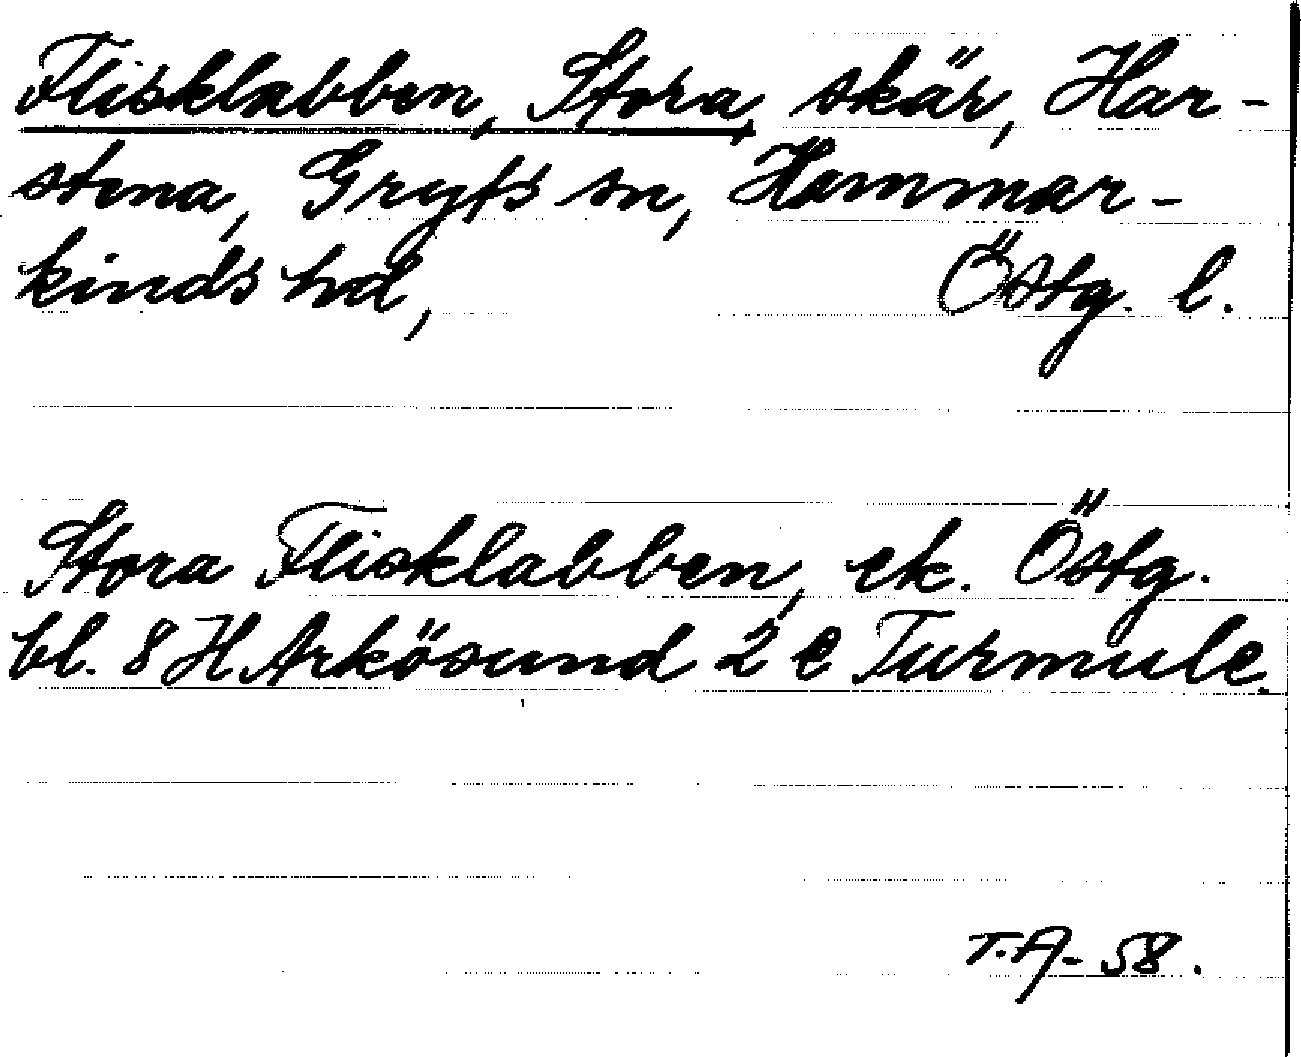 Flisklabben, Stora, skär, Har-
stena, Gryts sn, Hammar-
kinds hd, Östg. l.
Stora Flisklabben, ek. Östg.
bl. 8 H Arkösund 2 e Turmule.
T.A- 58.